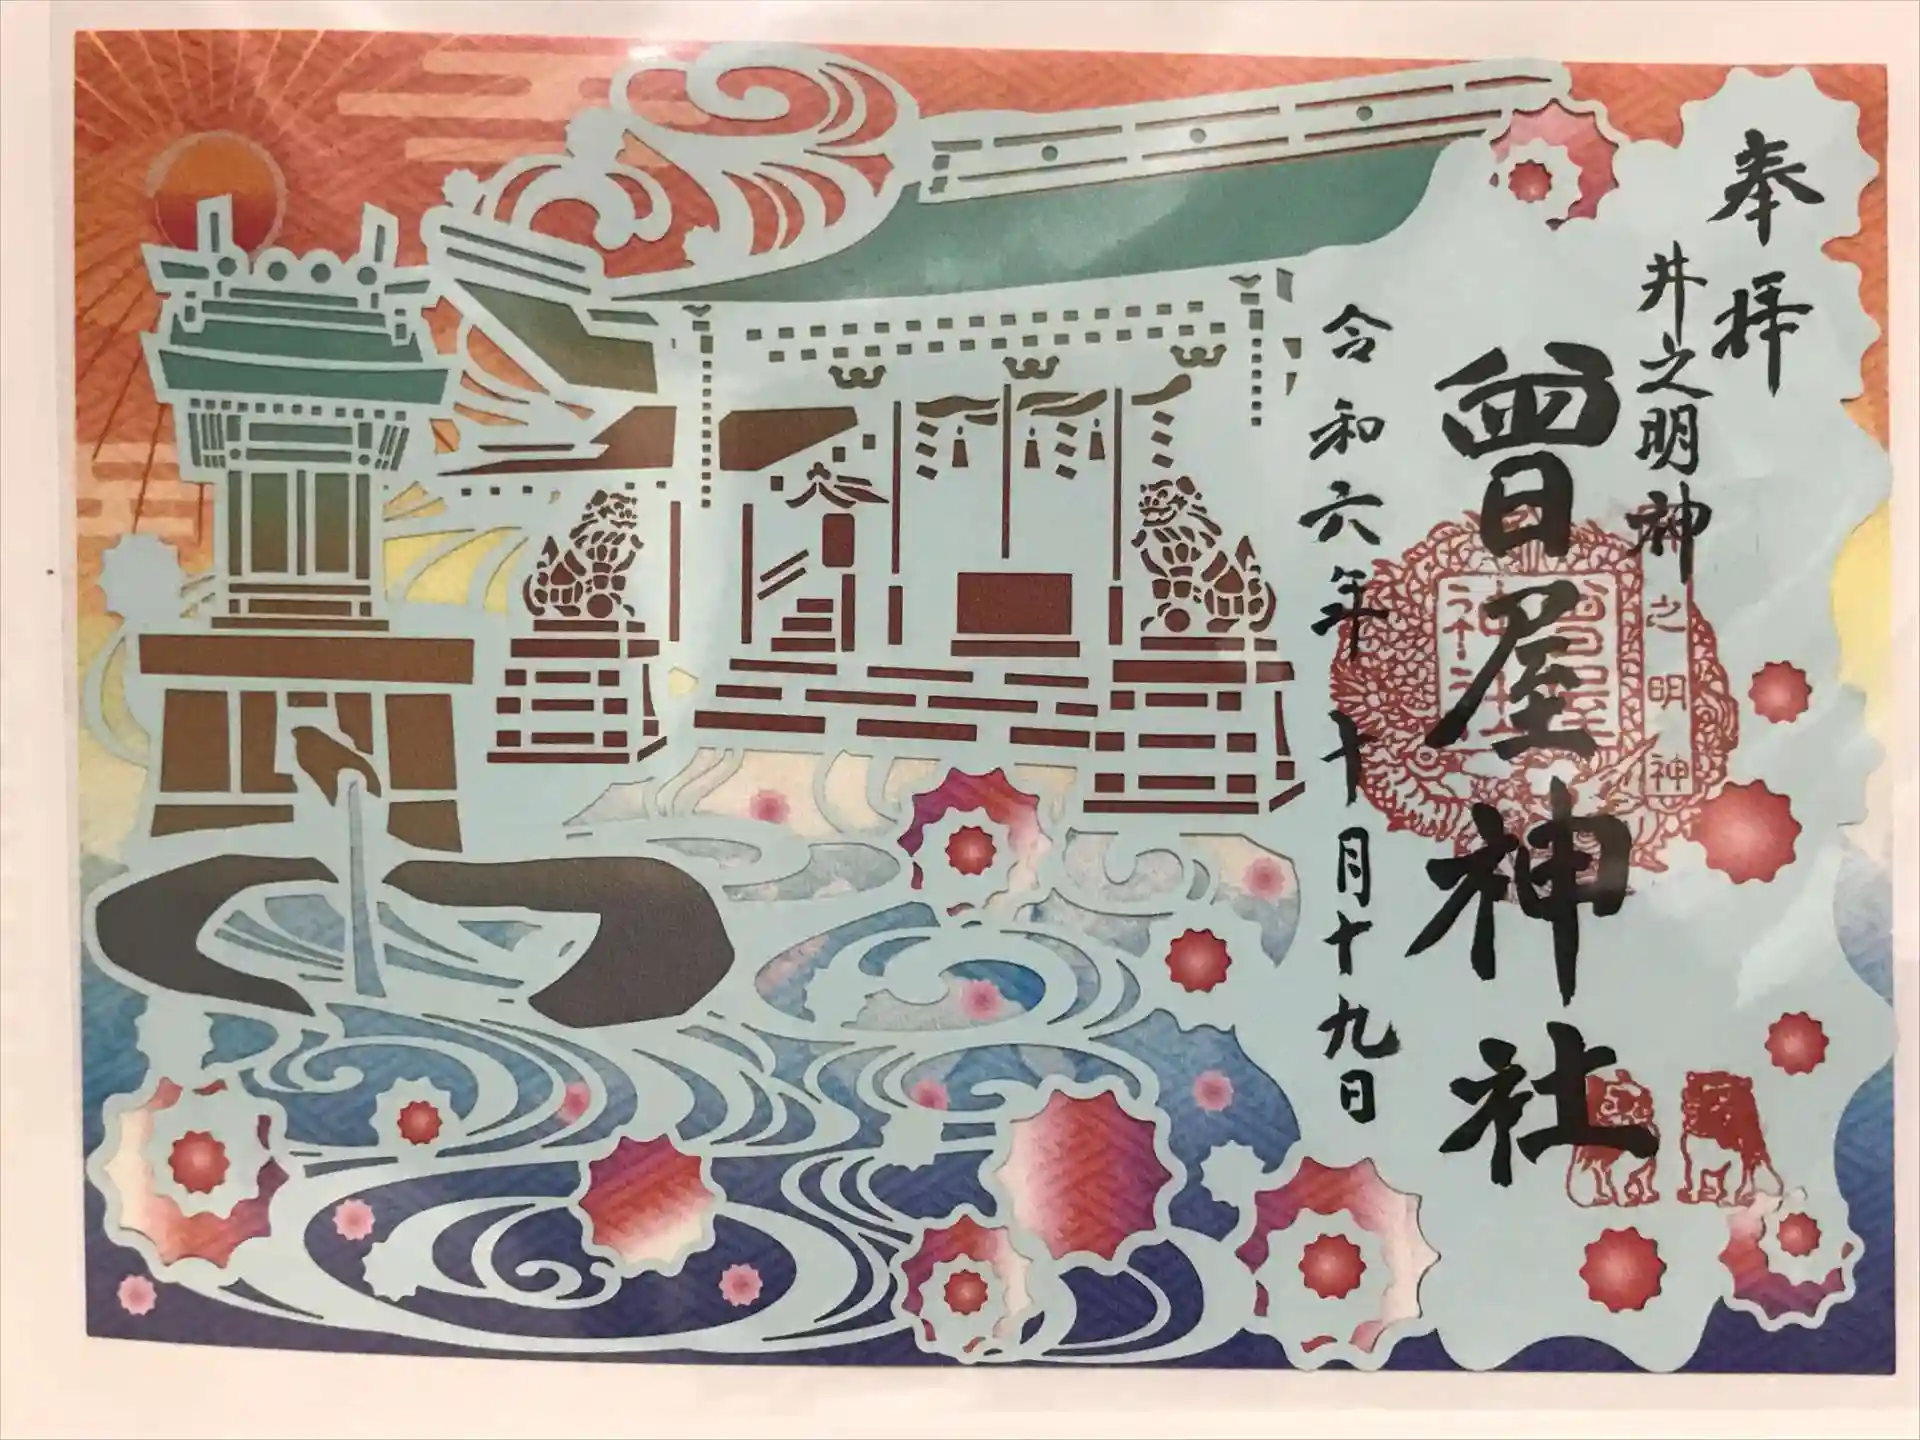 奉拝
井之明神
曾屋神社
令和六年十月十九日
井之明神